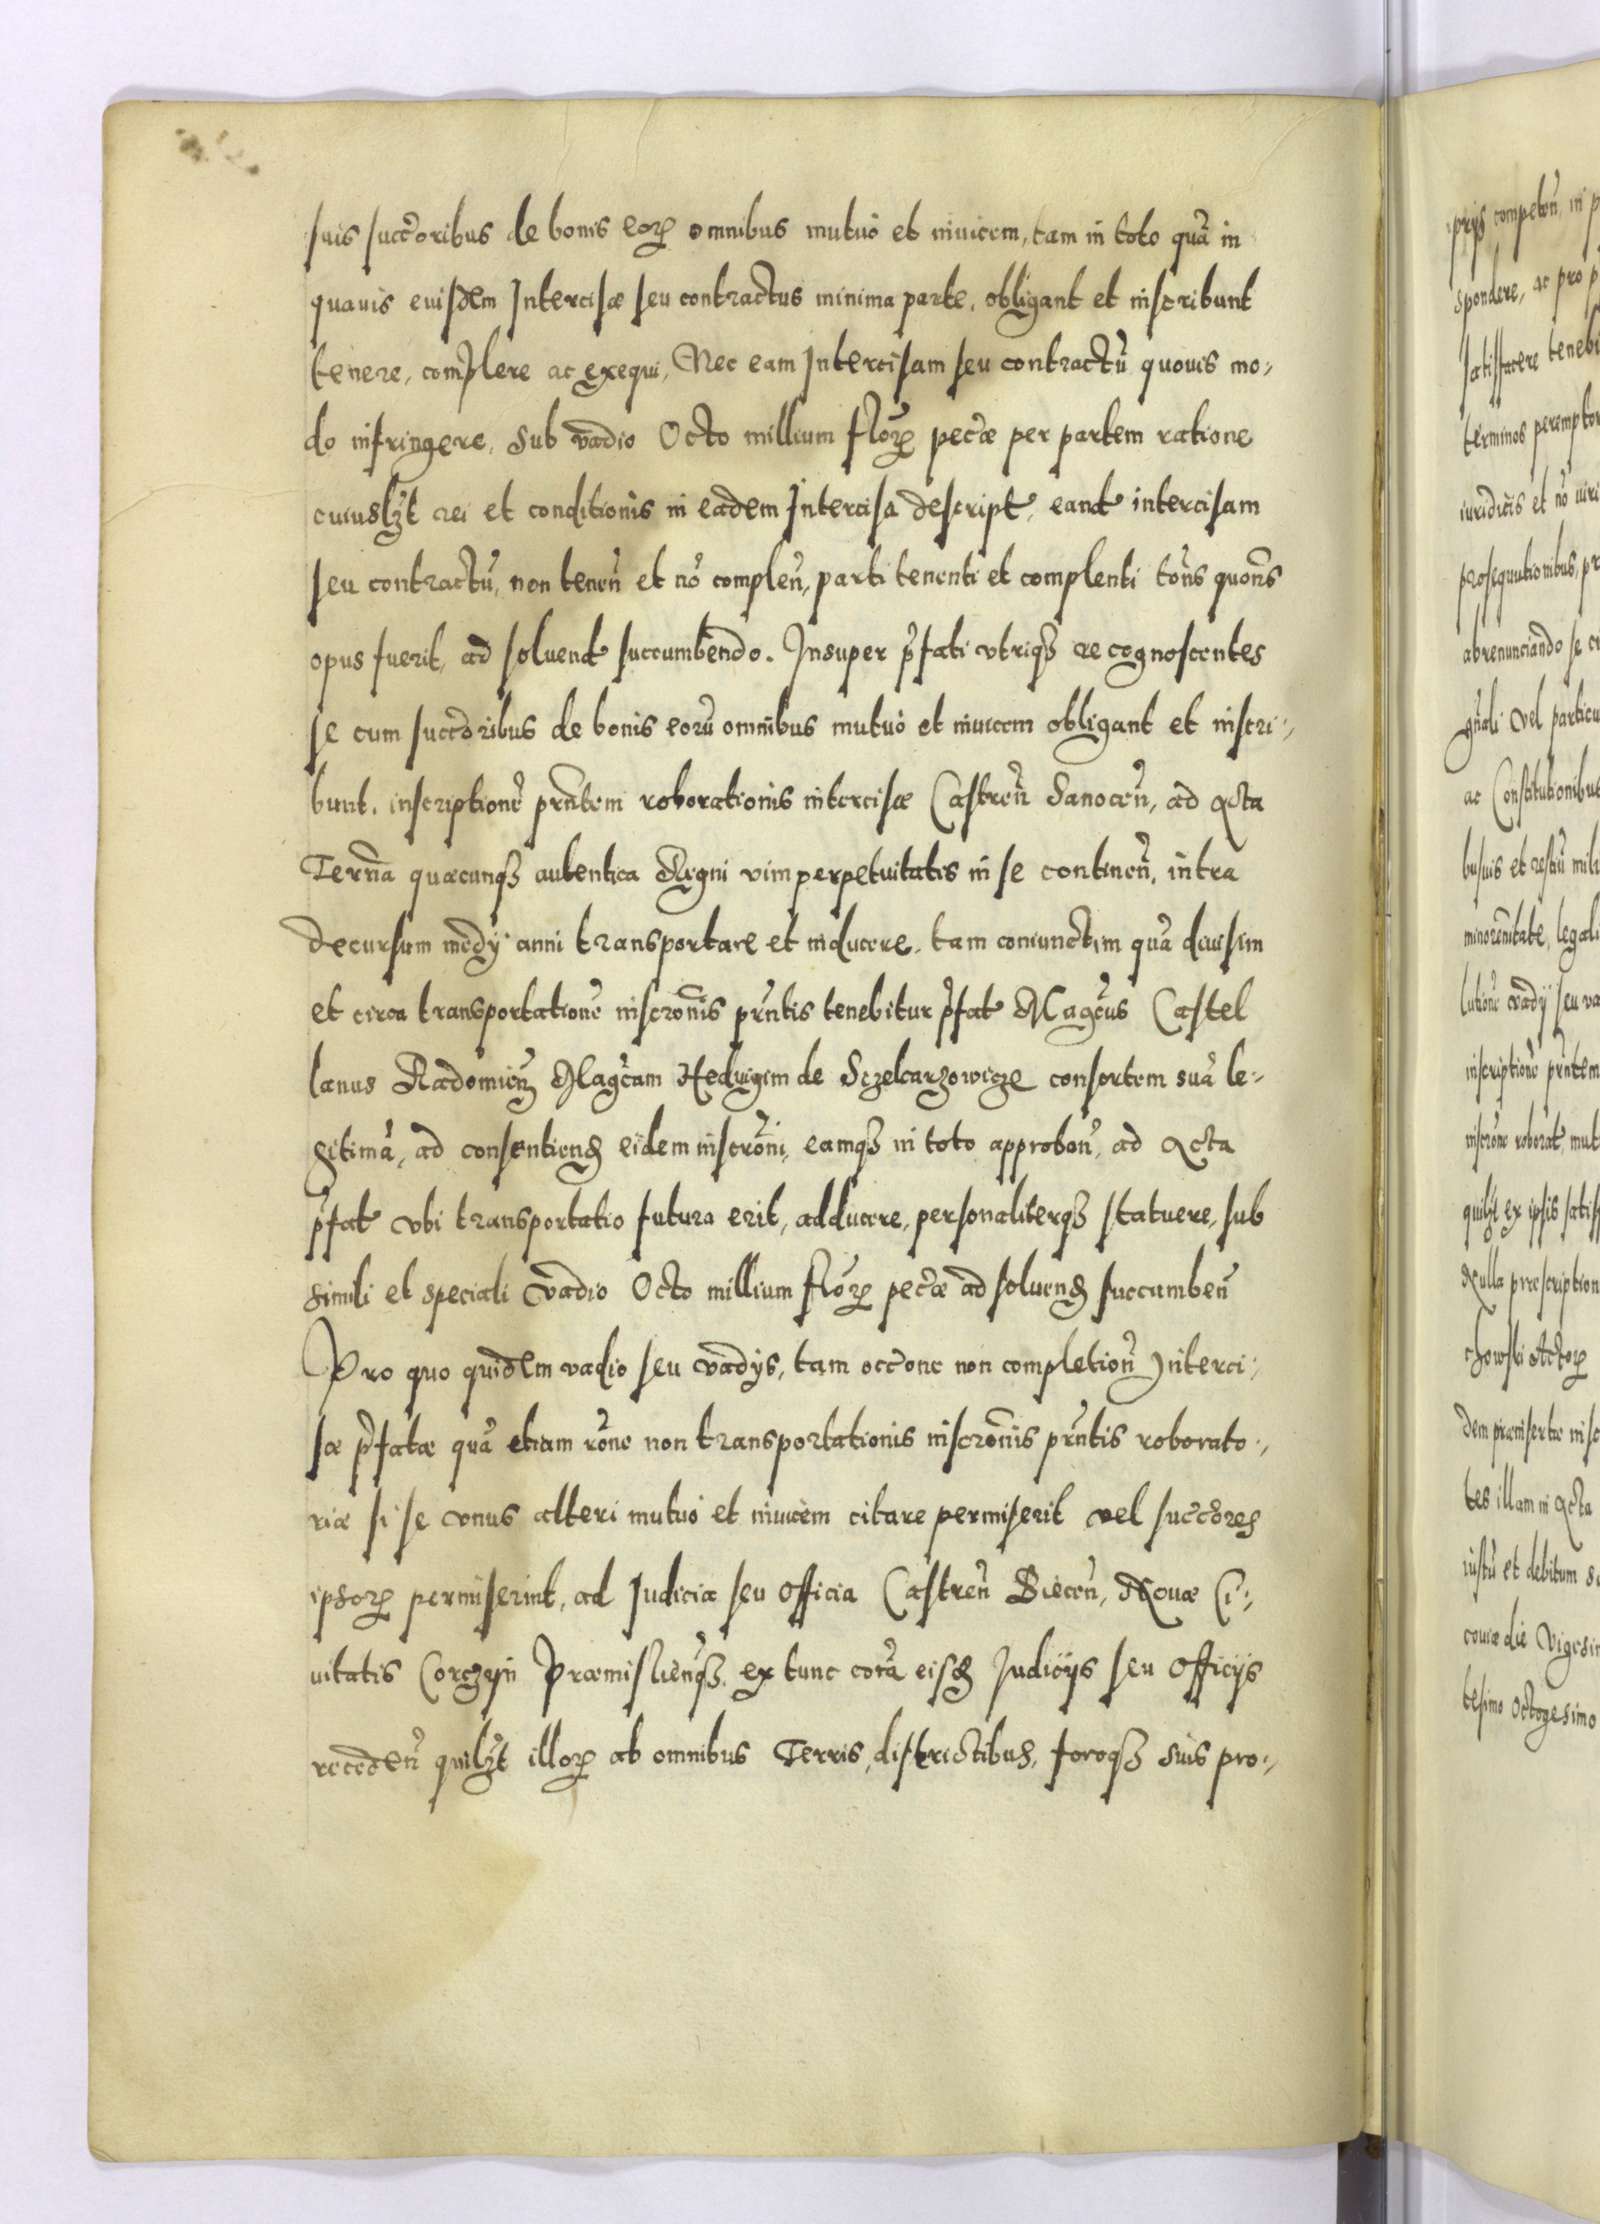 suis succoribus de bonis eoꝝ omnibus mutuò et inuicem, tam in toto quā in
quauis euisdem Intercisæ seu contractus minima parte, obligant et inscribunt
tenere, complere ac exequi, Nec eam Intercisam seu contractū quouis mo-
do infringere, sub vadio Octo millium floꝝ pecæ per partem ratione
cuiuslꝫt rei et conditionis in eadem Intercisa descript, eand intercisam
seu contractū, non tenen̄ et nō complen̄, parti tenenti et complenti tōns quōns
opus fuerit, ad soluend succumbendo. Insuper p̄fati vtriqꝫ recognoscentes
se cum succoribus de bonis eorū omnibus mutuò et inuicem obligant et inscri-
bunt, inscriptionē pr̄ntem roborationis intercisæ Castren̄ Sanocen̄, ad Acta
Terr̄na quæcunqꝫ autentica Regni vim perpetuitatis in se continen̄, intra
decursum medÿ anni transportare et inducere, tam coniunctim quā diuisim
et circa transportationē inscrōnis pr̄ntis tenebitur p̄fat Magc̄us Castel
lanus Radomien̄ Magc̄am Heduigim de Sczekarzowicze consortem suā le-
gitimā, ad consentiend eidem inscrōni, eamqꝫ in toto approbon̄, ad Acta
p̄fat vbi transportatio futura erit, adducere, personaliterqꝫ statuere, sub
simili et speciali Vadio Octo millium floꝝ pecæ ad soluend succumben̄
Pro quo quidem vadio seu vadÿs, tam occone non completion̄ Interci-
sæ p̄fatæ quā etiam rōne non transportationis inscrōnis pr̄ntis roborato-
riæ si se vnus alteri mutuò et inuicem citare permiserit vel succores
ipsoꝝ permiserint, ad Judicia seu officia Castren̄ Biecen̄, Nouæ Ci-
uitatis Corczyn Præmislien̄qꝫ, ex tunc corā eisd Judicijs seu Officijs
receden̄ quilꝫt illoꝝ ab omnibus Terris, districtibus, foroqꝫ suis pro-
prijs competen̄, in p
spondere, ac pro p
satisfacere tenebi
terminos perempto
iuridicis et nō iuri
prosequutionibus, pr
abrenunciando se
gn̄ali vel particu
ac Constitutionibus
busuis et
minorennitate, legali
lutione vadÿ seu va
inscriptionē pr̄ntem
inscrōne roborat, mut
quilꝫt ex ipsis satisf
Nulla præscription
chowski Actoꝝ
dem præinsertæ insc
tes illam in Acta
iustū et debitum
couiæ die Vigesim
tesimo Octogesimo